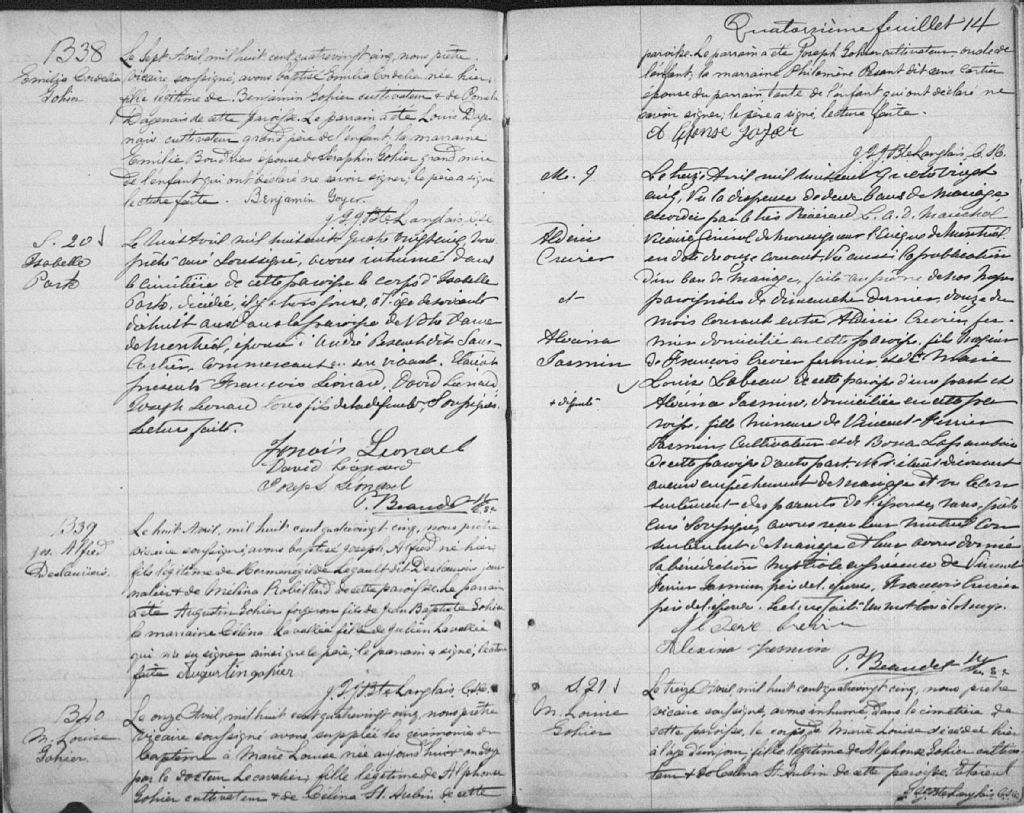 B38
Emilia Cordelia
Gohier
Le sept Avril mil huit cent quatrevingt cinq, nous prêtre
vicaire soussigné, avons baptisé Emilia Cordelia née hier,
fille légitime de Benjamin Gohier cultivateur & de
Dagenais de cette paroisse. Le parrain a été Louis Dage-
nais cultivateur grand père de l'enfant, la marraine
Emilie Boudrias épouse de Séraphin Gohier grand mère
de l'enfant qui ont déclaré ne savoir signer; le père a signé
lecture faite. Benjamin Goyer
J. Bte Langlais
S. 20
Isabelle
Park
Le huit Avril mil huit cent quatre vingt cinq nous
prêtre curé soussigné, avons inhumé dans
le cimetière de cette paroisse le corps d'Isabelle
Park, décédée, il y a trois jours, à l'âge de soixante
dixhuit ans dans la paroisse de Notre Dame
de Montréal, épouse d'André Besant dit Sans-
Cartier, commerçant en son vivant. Étaient
présents François Léonard, David Léonard
Joseph Léonard tous fils de la défunte, Soussignés
Lecture faite.
Léonard
David Léonard
Joseph Léonard
P. Beaudet
B39
Jos. Alfred
Deslauriers
Le huit Avril, mil huit cent quatrevingt cinq, nous prêtre
vicaire soussigné, avons baptisé Joseph Alfred né hier,
fils légitime de Herménégilde Legault dit Deslauriers jour-
nalier & de Mélina Robillard de cette paroisse. Le parrain
a été Augustin Gohier forgeron fils de Jean Baptiste Gohier
la marraine Célina Lavallée fille de Julien Lavallée
qui n'a su signer ainsi que le père, le parrain a signé, lecture
faite Augustin gohier
J. Bte Langlais
B40
M. Louise
Gohier
Le onze Avril, mil huit cent quatrevingt cinq, nous prêtre
vicaire soussigné avons suppléé les cérémonies du
Baptême à Marie Louise née aujourd'hui
par le docteur Lecavalier, fille légitime de Alphonse
Gohier cultivateur & de Célina St. Aubin de cette
Quatorzième feuillet 14
paroisse. Le parrain a été Joseph Gohier cultivateur oncle de
l'enfant, la marraine Philomène Besant dit sans cartier
épouse du parrain tante de l'enfant qui ont déclaré ne
savoir signer; le père a signé, lecture faite.
Alfonse goyer
J. Bte Langlais
M. 9
Aldéric
Crevier
et
Alexina
Jasmin
+ défunte
Le treize Avril mil huit cent quatre vingt
cinq, Vu la dispense de deux bans de mariage
accordée par le très Révérend L. A. D. Maréchal
Vicaire Général de Monseigneur l'Evêque de Montréal
en date du onze courant, Vu aussi la publication
d'un ban de mariage, faite au prône de nos messes
paroissiales du dimanche dernier, douze du
mois courant entre Aldéric Crevier, fer-
mier domicilié en cette paroisse, fils majeur
de François Crevier fermier et de + Marie
Louise Labeau de cette paroisse d'une part et
Alexina Jasmin, domiciliée en cette pa-
roisse, fille mineure de Vincent Ferrier
Jasmin, cultivateur et de
de cette paroisse d'autre part. Ne s'étant découvert
aucun empêchement de mariage et vu le con-
sentement des parents de l'épouse, nous, prêtre
curé soussigné, avons reçu leur mutuel con-
sentement de mariage et leur avons donné
la bénédiction nuptiale en présence de Vincent
Ferrier Jasmin, père de l'épouse, François Crevier
père de l'époux. Lecture faite.
Crevier
Alexina Jasmin
P. Beaudet
S 21
M. Louise
Gohier
Le treize Avril mil huit cent quatrevingt cinq, nous, prêtre
vicaire soussigné, avons inhumé dans le cimetière de
cette paroisse, le corps de Marie Louise décédée hier
à l'âge d'un jour, fille légitime de Alphonse Gohier cultiva-
teur & de Célina St. Aubin de cette paroisse. Etaient
J. Bte Langlais